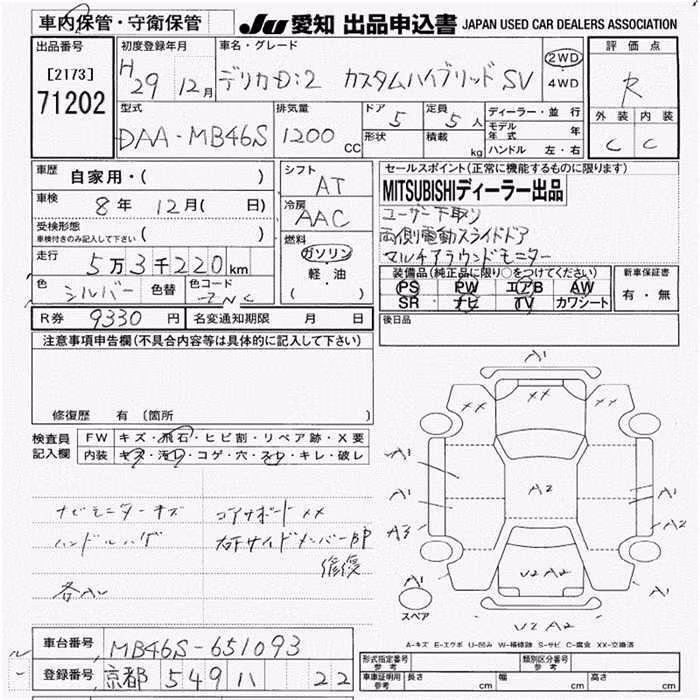 車内保管・守衛保管
JU 愛知 出品申込書 JAPAN USED CAR DEALERS ASSOCIATION
出品番号
[2173]
71202
初度登録年月
H 29 12月
車名・グレード
デリカD:2 カスタムハイブリッド SV
2WD
・
4WD
評価点
R
外装 内装
C C
型式
DAA-MB46S
排気量
1200 CC
ドア 5
形状
定員 5人
積載 kg
ディーラー・並行
モデル年式 年
ハンドル 左・右
車歴 自家用・( )
車検 8年 12月( 日)
受検形態
車検付きのみ記入して下さい ( )
走行 5万3千220km
色 シルバー 色替 色コード ZNC
シフト AT
冷房 AAC
燃料
ガソリン
・
軽・油
( )
セールスポイント(正常に機能するものに限ります)
MITSUBISHIディーラー出品
ユーザー下取り
両側電動スライドドア
マルチアラウンドモニター
装備品(純正品に限り○をつけてください)
PS PW エアB AW
SR ナビ TV カワシート
新車保証書
有・無
R券 9330円 名変通知期限 月 日
後日品
注意事項申告欄(不具合内容等は具体的に記入して下さい)
修復歴 有 (箇所 )
検査員記入欄
FW キズ・飛石・ヒビ割・リペア跡・X要
内装 キズ・汚れ・コゲ・穴・スレ・キレ・破レ
ナビモニターキズ コアサポートXX
ハンドルハゲ 右Fサイドメンバー部
修復
各AU
A1
XX XX XX
A1
A1 A1
A2
A3 A2
A1 U2 A2 A1
スペア
U2 A2
A-キズ E-エクボ U-凹み W-補修跡 S-サビ C-腐食 XX-交換済
車台番号 MB46S-651093
登録番号 京都 549 ハ 22
形式指定番号
参考
類別区分番号
参考
車庫証明用
参考
長さ cm 幅 cm 高さ cm